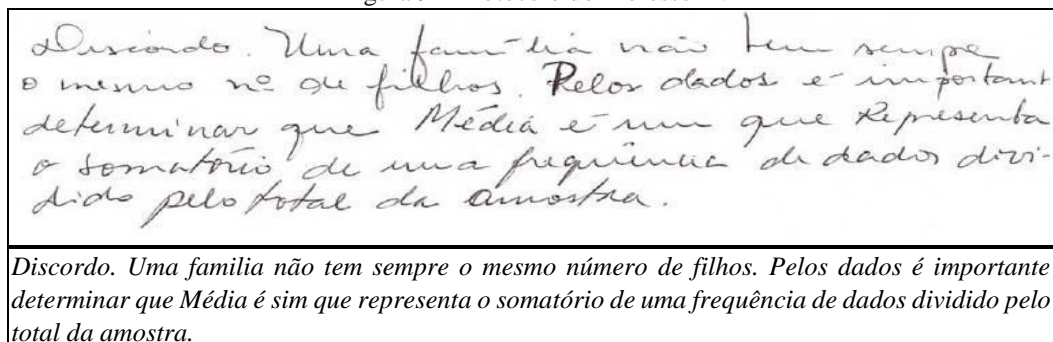 Discordo. Uma família não tem sempre
o mesmo nº de filhos. Pelos dados é important
determinar que Média é um que representa
o somatório de uma frequência de dados divi-
dido pelo total da amostra.
Discordo. Uma familia não tem sempre o mesmo número de filhos. Pelos dados é importante
determinar que Média é sim que representa o somatório de uma frequência de dados dividido pelo
total da amostra.